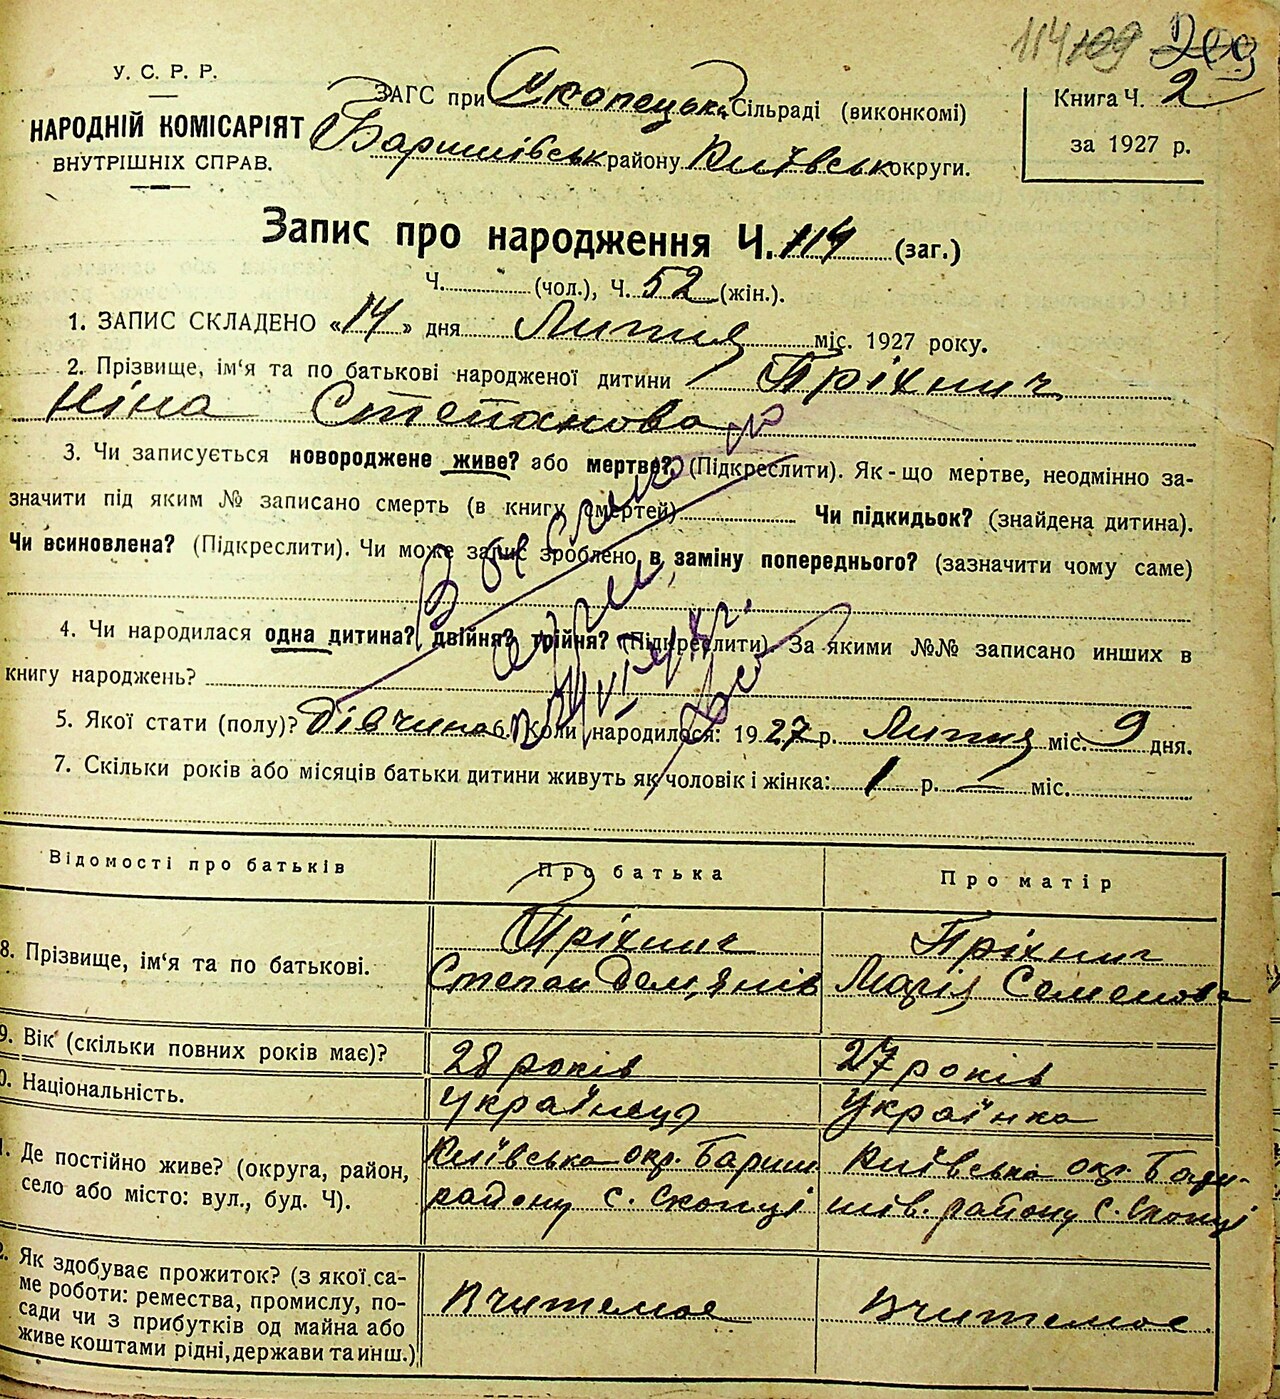 114 109
У. С. Р. Р.
НАРОДНІЙ КОМІСАРІЯТ
ВНУТРІШНІХ СПРАВ.
ЗАГС при Скопецьк. Сільраді (виконкомі)
Баришівськ району Київськ округи.
Книга Ч. 2
за 1927 р.
Запис про народження Ч. 114 (заг.)
Ч. (чол.), Ч. 52 (жін.).
1. ЗАПИС СКЛАДЕНО «14» дня Липня міс. 1927 року.
2. Прізвище, ім'я та по батькові народженої дитини Пріхнич
Ніна Степанова
3. Чи записується новороджене живе? або мертве? (Підкреслити). Як-що мертве, неодмінно за-
значити під яким № записано смерть (в книгу смертей) Чи підкидьок? (знайдена дитина).
Чи всиновлена? (Підкреслити). Чи може запис зроблено в заміну попереднього? (зазначити чому саме)
4. Чи народилася одна дитина? двійня? трійня? (Підкреслити). За якими №№ записано инших в
книгу народжень?
5. Якої стати (полу)? Дівчина 6. Коли народилося: 1927 р. Липня міс. 9 дня.
7. Скільки років або місяців батьки дитини живуть як чоловік і жінка: 1 р. — міс.
Відомості про батьків
Про батька
Про матір
8. Прізвище, ім'я та по батькові.
Пріхнич
Степан Дем,янів
Пріхнич
Марія Семенова
9. Вік (скільки повних років має)?
28 років
27 років
0. Національність.
Українець
Українка
1. Де постійно живе? (округа, район,
село або місто: вул., буд. Ч).
Київська окр. Бариш.
району с. Скопці
Київська окр. Бари-
шів. району с. Скопці
2. Як здобуває прожиток? (з якої са-
ме роботи: ремества, промислу, по-
сади чи з прибутків од майна або
живе коштами рідні, держави та инш.)
Вчителює
Вчителює